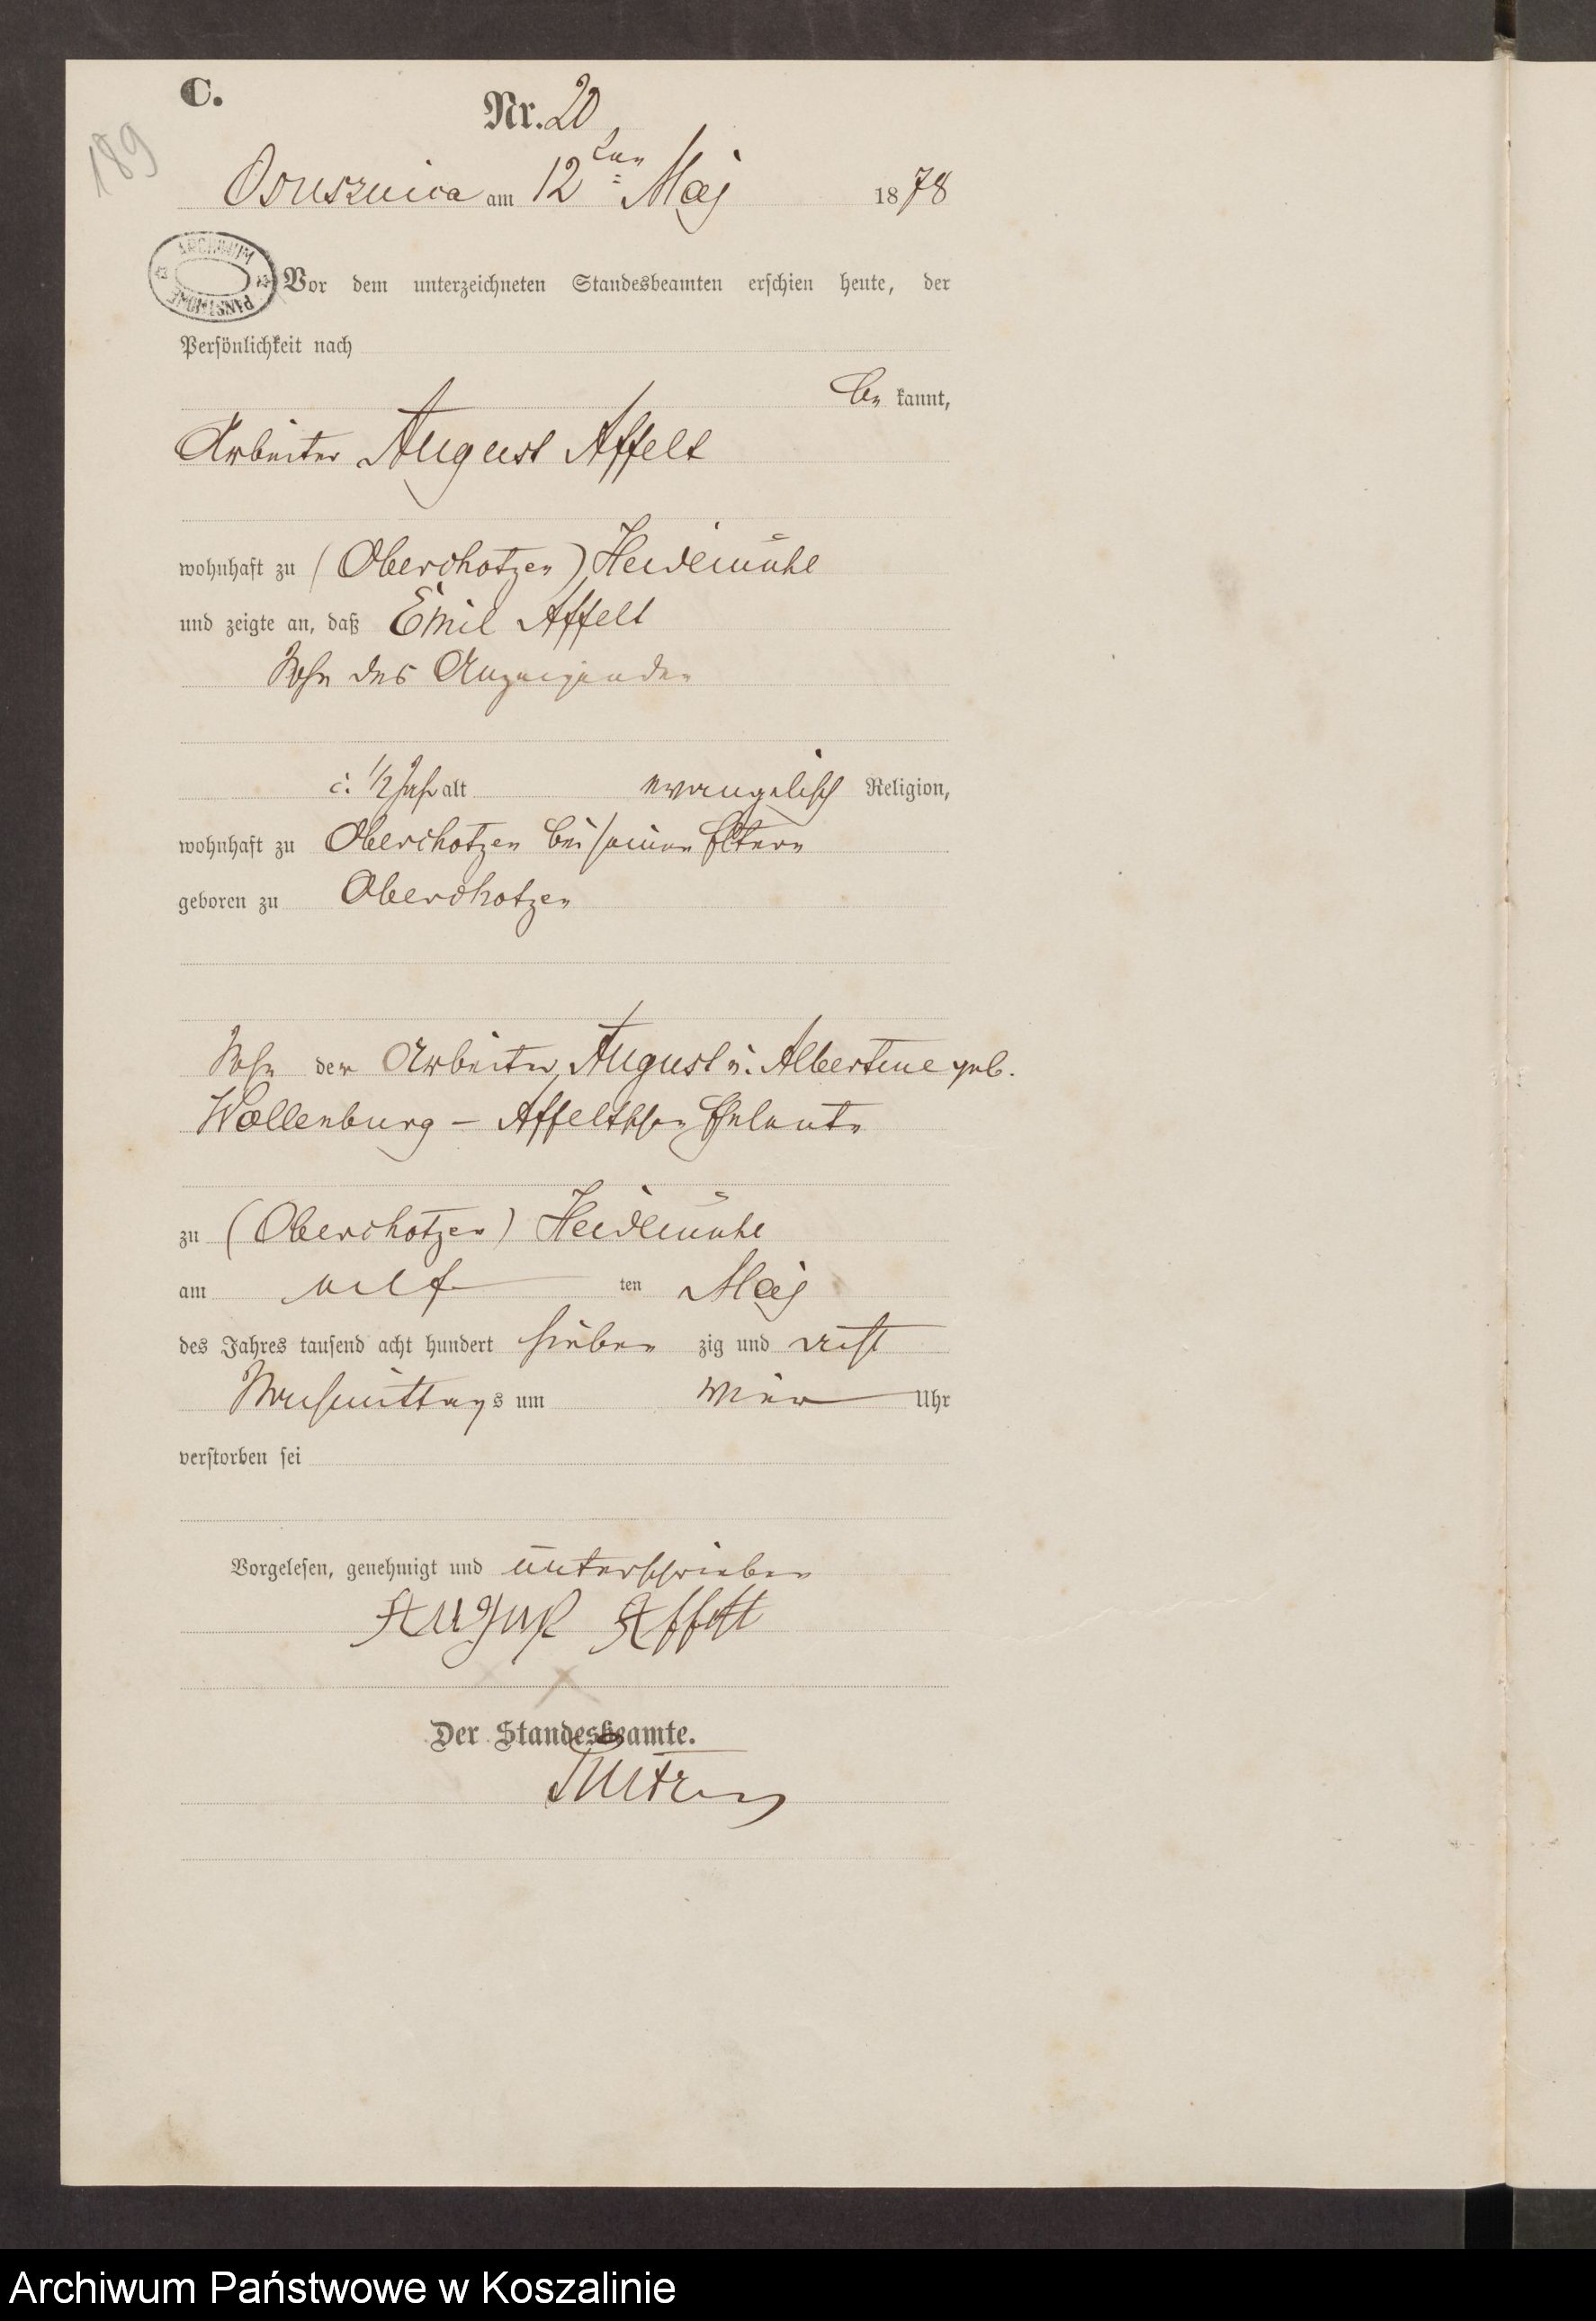 C.
Nr. 20
189
Osusznica am 12ten Maj 1878
ARCHIWUM PAŃSTWOWE
Vor dem unterzeichneten Standesbeamten erschien heute, der
Persönlichkeit nach
be kannt,
Arbeiter August Affelt
wohnhaft zu (Oberchotzen) Heidemühl
und zeigte an, daß Emil Affelt
Sohn des Anzeigenden
c. 1/2 Jahr alt evangelisch Religion,
wohnhaft zu Oberchotzen bei seinen Eltern
geboren zu Oberchotzen
Sohn der Arbeiter August u. Albertine geb.
Wollenburg – Affeltschen Eheleute
zu (Oberchotzen) Heidemühl
am elf ten Maj
des Jahres tausend acht hundert sieben zig und acht
Nachmittags um vier Uhr
verstorben sei
Vorgelesen, genehmigt und unterschrieben
August Affelt
Der Standesbeamte.
Archiwum Państwowe w Koszalinie